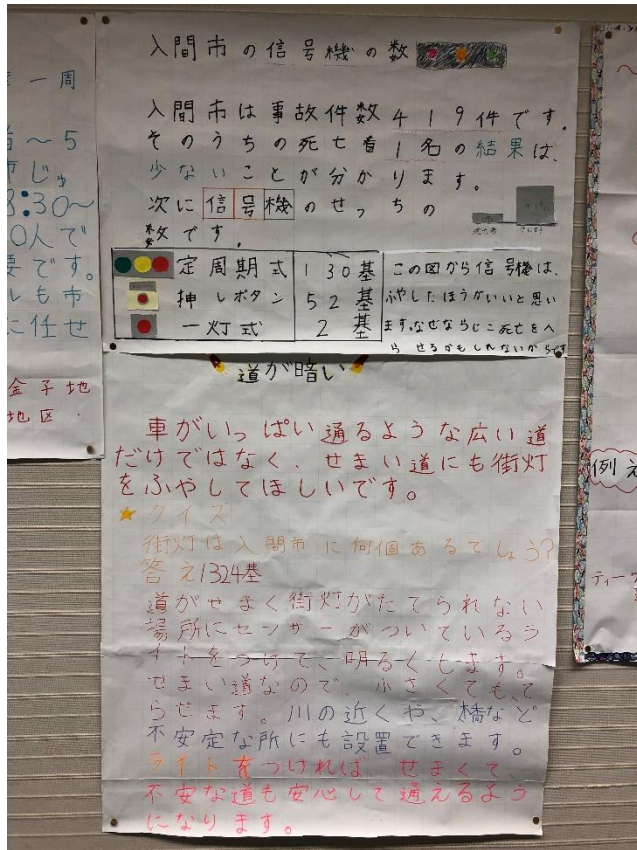 入間市の信号機の数
入間市は事故件数419件です。
そのうちの死亡者1名の結果は、
少ないことが分かります。
次に信号機のせっちの
数です。
定周期式 130基
押しボタン 52基
一灯式 2基
この図から信号機は、
ふやしたほうがいいと思い
ます。なぜならじこ死亡をへ
らせるかもしれないからです
道が暗い
車がいっぱい通るような広い道
だけではなく、せまい道にも街灯
をふやしてほしいです。
クイズ
街灯は入間市に何個あるでしょう?
答え1324基
道がせまく街灯がたてられない
場所にセンサーがついているラ
イトをつけて、明るくします。
せまい道なので、小さくても、て
らせます。川の近くや、橋など
不安定な所にも設置できます。
ライトをつければ、せまくて、
不安な道も安心して通えるよう
になります。
一周
〜5
8:30〜
0人で
要です。
ルも市
に任せ
金子地
地区
例え
ティー